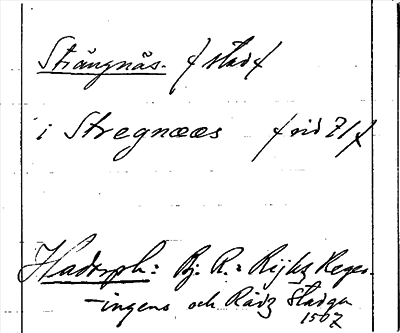 Strängnäs. /stad/
i Stregnææs /sid 71/
Hadorph: Bj. R.: Rijkz Reges-
ingens och Rådz Stadga
1507